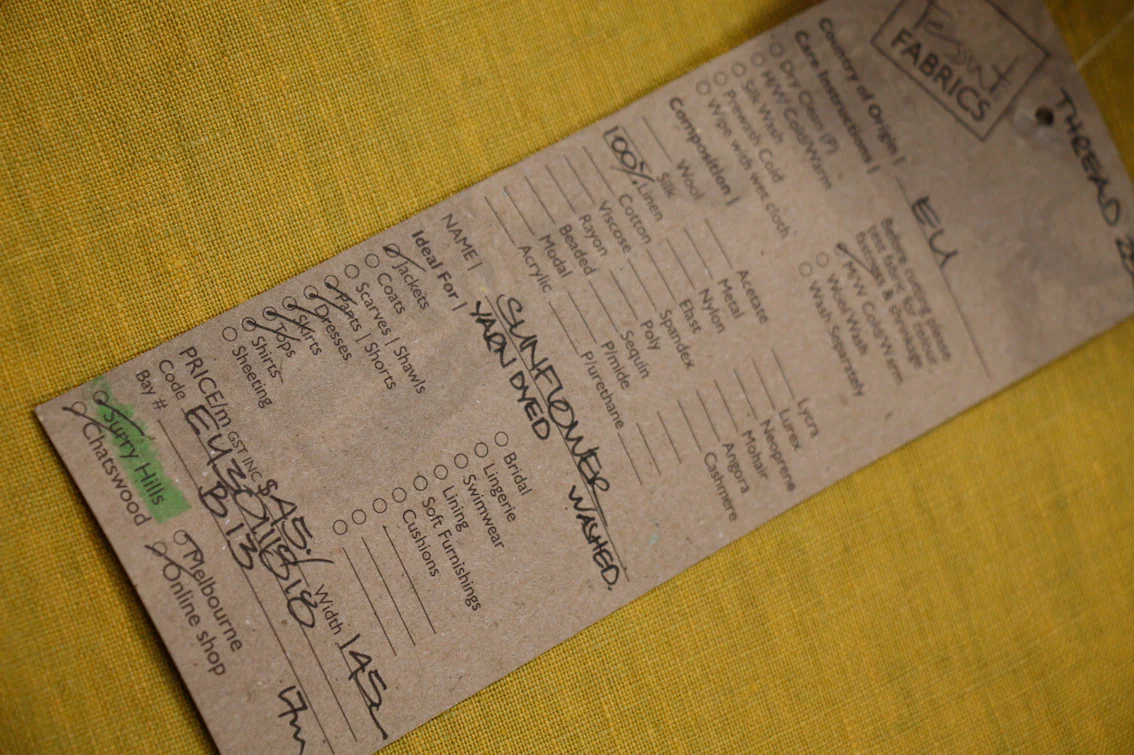 Tessuti
FABRICS
THREAD
Country of Origin | EU
Care Instructions |
Dry Clean (P)
H/W Cold/Warm
Silk Wash
Prewash Cold
Wipe with wet cloth
Before cutting please
test fabric for colour
fastness & shrinkage
M/W Cold/Warm
Wool Wash
Wash Separately
Composition |
Wool
Silk
100% Linen
Cotton
Viscose
Rayon
Beaded
Modal
Acrylic
Acetate
Metal
Nylon
Elast
Spandex
Poly
Sequin
P/mide
P/urethane
Lycra
Lurex
Neoprene
Mohair
Angora
Cashmere
NAME | SUNFLOWER WASHED.
YARN DYED
Ideal For |
Jackets
Coats
Scarves | Shawls
Pants | Shorts
Dresses
Skirts
Tops
Shirts
Sheeting
Bridal
Lingerie
Swimwear
Lining
Soft Furnishings
Cushions
PRICE/m GST INC $A45./ Width 145
Code
Bay # B 13 17m
Surry Hills
Chatswood
Melbourne
Online shop